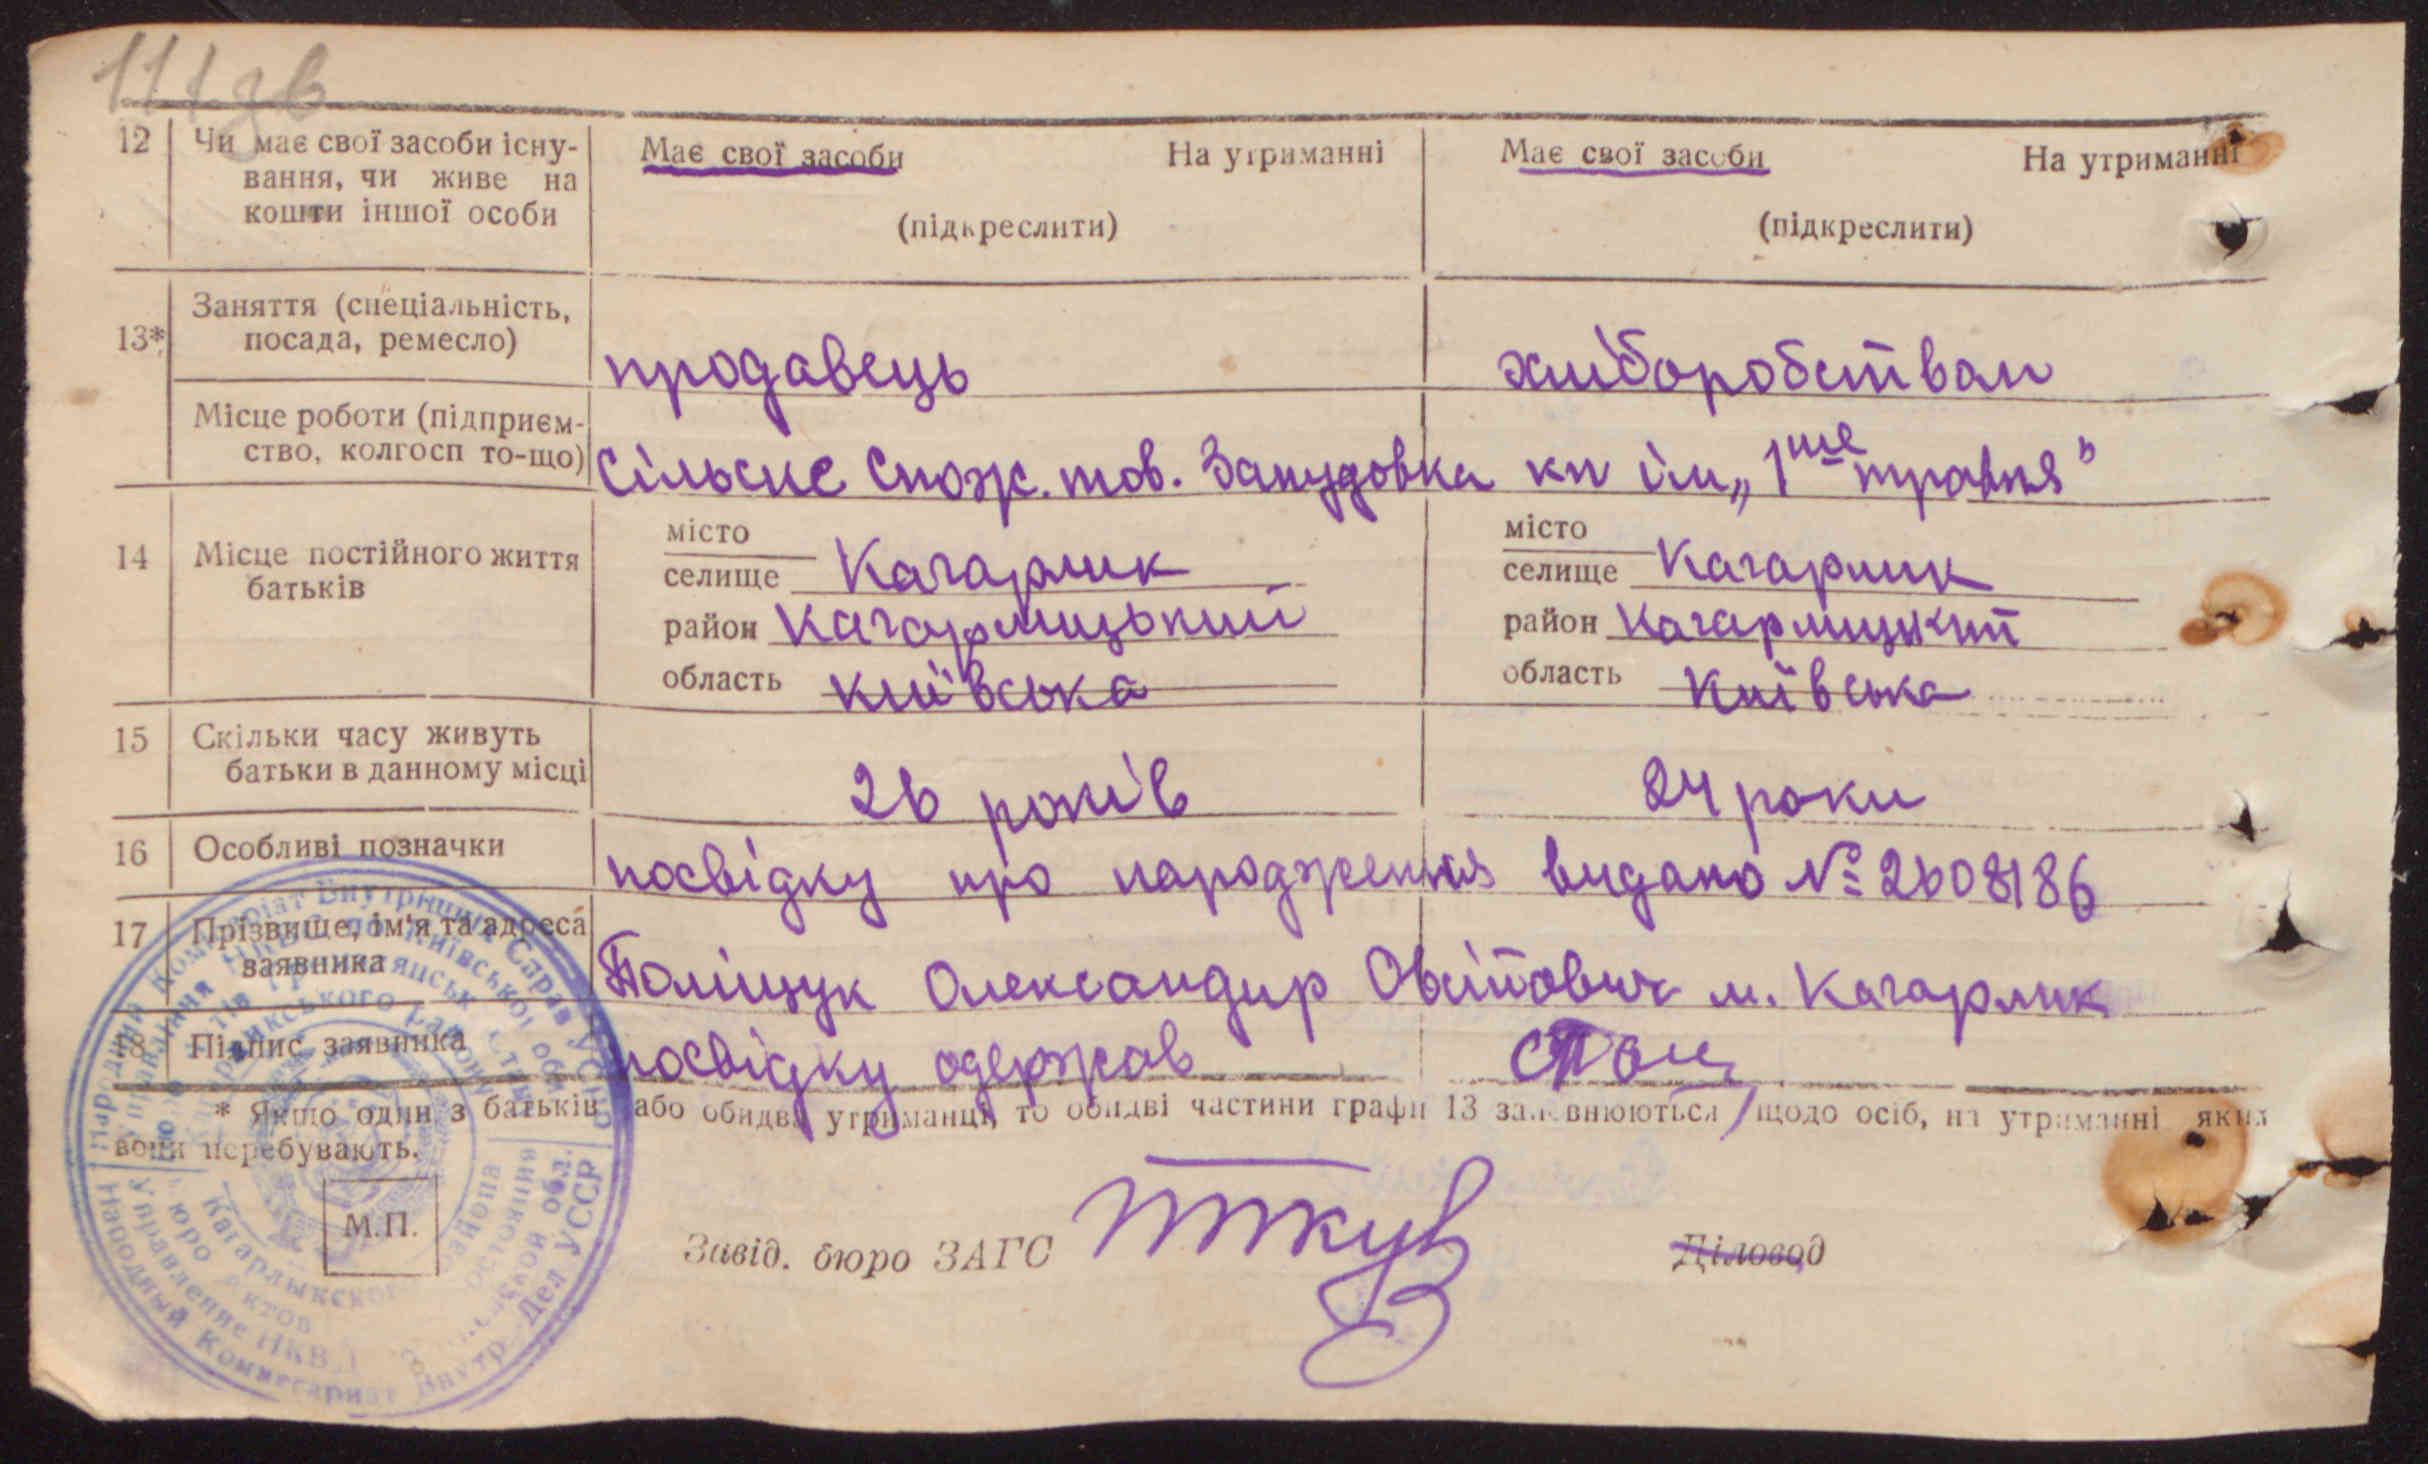 111 зв
12 Чи має свої засоби існу-
вання, чи живе на
кошти іншої особи
Має свої засоби На утриманні
(підкреслити)
Має свої засоби На утриманні
(підкреслити)
13* Заняття (спеціальність,
посада, ремесло)
продавець
хліборобством
Місце роботи (підприєм-
ство, колгосп то-що)
Сільске Спож. тов.
кп ім „1ше травня"
14 Місце постійного життя
батьків
місто
селище Кагарлик
район Кагарлицький
область Київська
місто
селище Кагарлик
район Кагарлицкий
область Київська
15 Скільки часу живуть
батьки в данному місці
26 років
24 роки
16 Особливі позначки
посвідку про народження видано № 2608186
17 Прізвище, ім'я та адреса
заявника
Поліщук Олександир м. Кагарлик
18 Підпис заявника
посвідку одержав
* Якщо один з батьків або обидва утриманці, то обидві частини графи 13 заповнюються щодо осіб, на утриманні яких
вони перебувають.
М.П.
Завід. бюро ЗАГС
Діловод
Народний Комісаріат Внутрішніх Справ УСРР
Управління НКВС по Київської обл.
Кагарликського району
Народный Комиссариат Внутр. Дел УССР
Управление НКВД
Кагарлыкского района